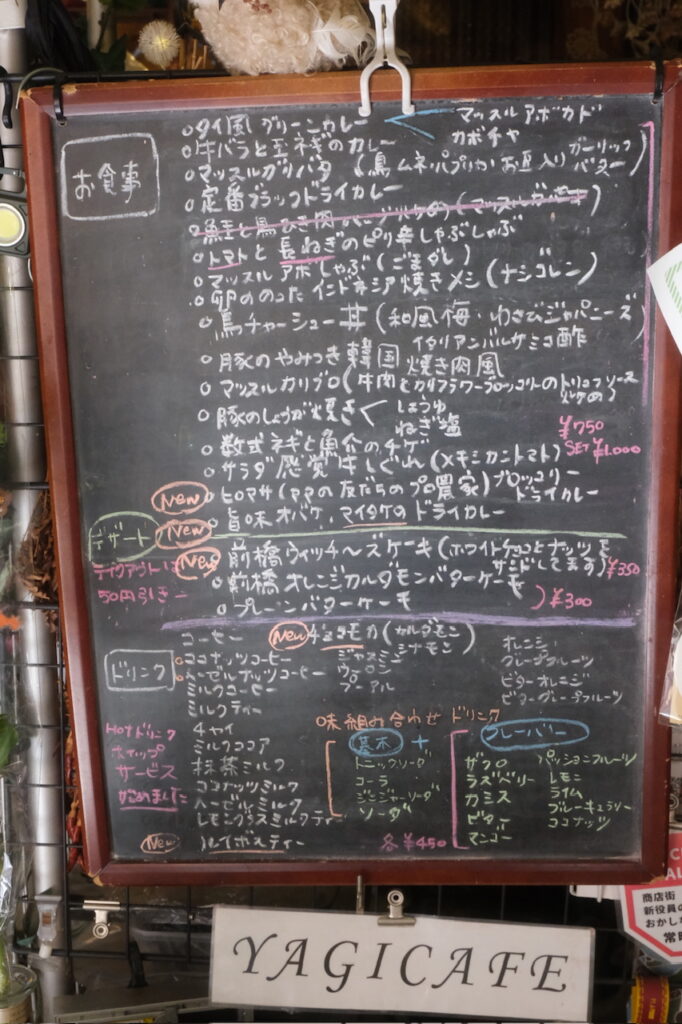 お食事
○タイ風グリーンカレー ← マッスルアボカド
カボチャ
○牛バラと玉ネギのカレー
○マッスルガリバタ (鳥ムネ パプリカ お豆入り ガーリックバター)
○定番ブラックドライカレー
○トマトと長ねぎのピリ辛しゃぶしゃぶ
○マッスルアボしゃぶ (ごまだし)
○卵ののったインドネシア焼きメシ (ナシゴレン)
○鳥チャーシュー丼 (和風梅・わさびジャパニーズ
イタリアンバルサミコ酢
○豚のやみつき韓国焼き肉風
○マッスルカリブロ (牛肉とカリフラワーブロッコリーの
○豚のしょうが焼き < しょうゆ
ねぎ塩
¥750
SET ¥1.000
○数式ネギと魚介のチゲ
○サラダ感覚 牛しぐれ (メキシカントマト)
New ○ヒロマサ (ママの友だちのプロ農家) ブロッコリー
ドライカレー
New ○旨味オバケ、マイタケのドライカレー
デザート
New ○前橋ウィッチ〜ズケーキ (ホワイトチョコとナッツを
サンドしてます) ¥350
○前橋オレンジカルダモンバターケーキ
○プレーンバターケーキ ) ¥300
テイクアウトは
50円引き
ドリンク
コーヒー
○ココナッツコーヒー
○ヘーゼルナッツコーヒー
ミルクコーヒー
ミルクティー
チャイ
ミルクココア
抹茶ミルク
ココナッツミルク
ヘーゼルミルク
レモングラスミルクティー
New ルイボスティー
New (カルダモン
シナモン)
ジャスミン
ウーロン
プーアル
オレンジ
グレープフルーツ
ビターオレンジ
ビターグレープフルーツ
HOTドリンク
ホイップ
サービス
はじめました
味組み合わせ ドリンク
基本 +
トニックソーダ
コーラ
ジンジャーソーダ
ソーダ
フレーバリー
ザクロ
ラズベリー
カシス
ビター
マンゴー
パッションフルーツ
レモン
ライム
ブルーキュラソー
ココナッツ
各¥450
YAGICAFE
商店街
新役員の
おかし